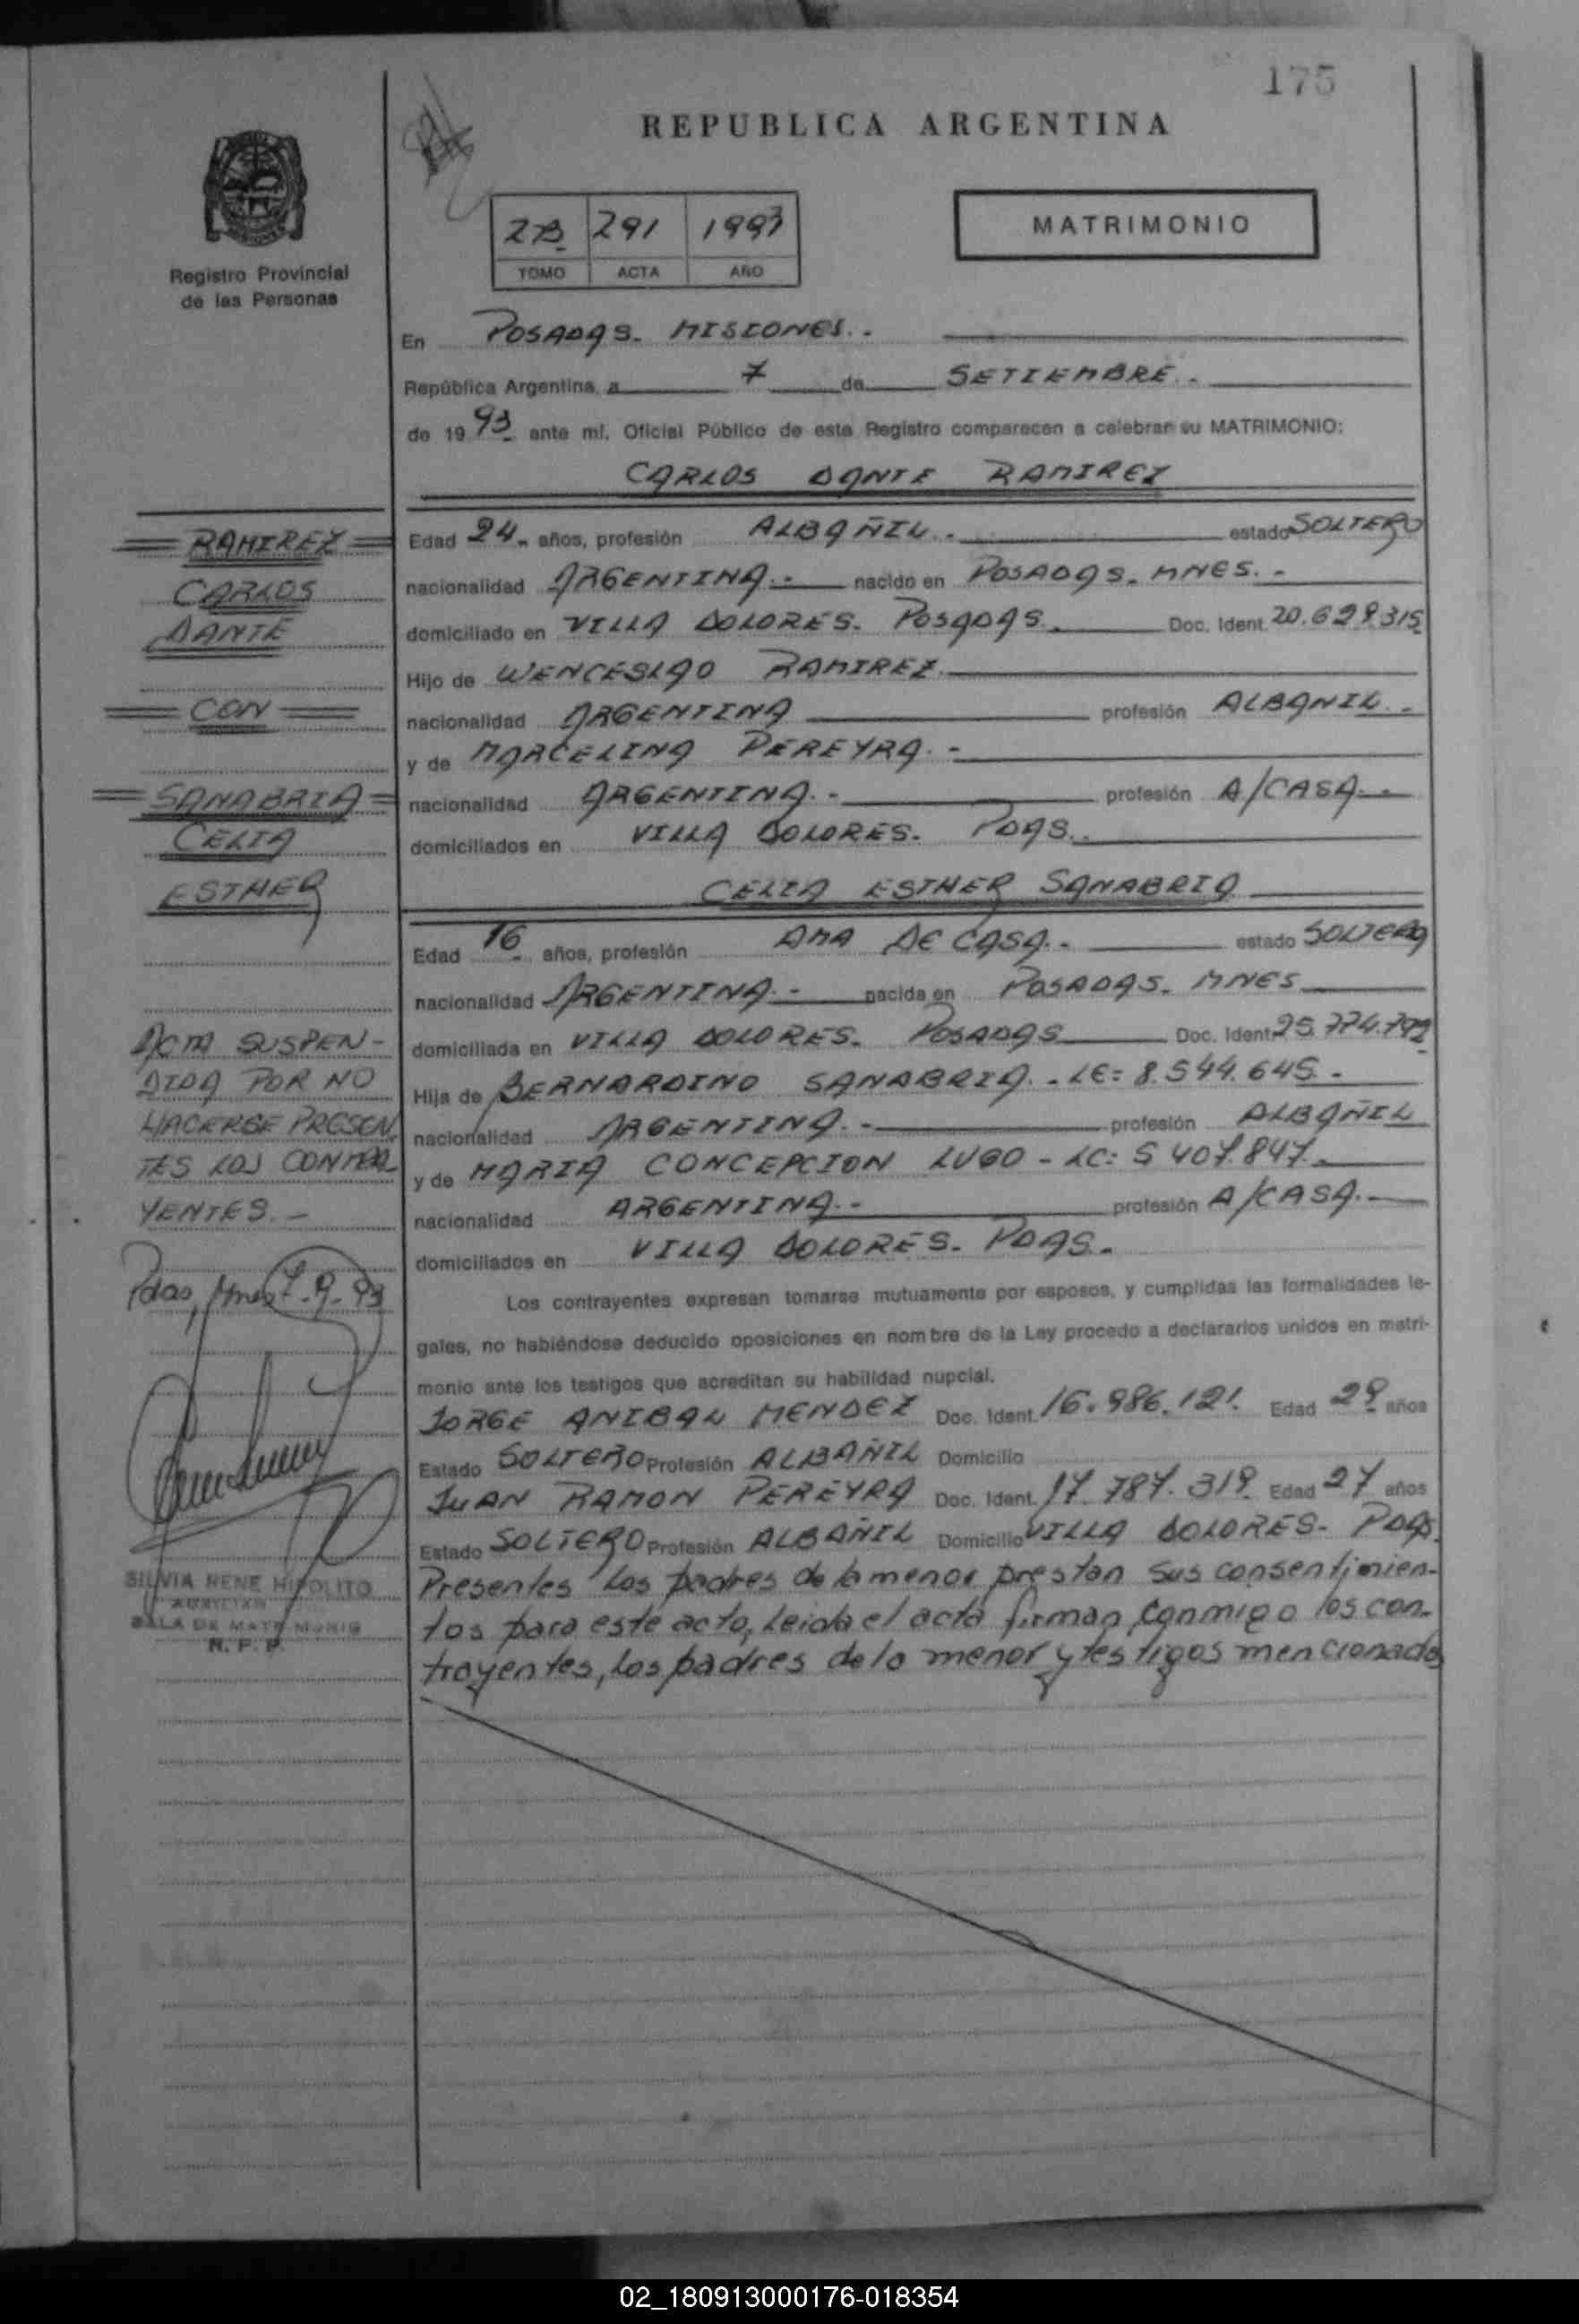 175
REPUBLICA ARGENTINA
2B 291 1993
TOMO ACTA AÑO
MATRIMONIO
Registro Provincial
de las Personas
En POSADAS. MISIONES.
República Argentina, a 7 de SETIEMBRE.
de 1993 ante mí, Oficial Público de este Registro comparecen a celebrar su MATRIMONIO:
CARLOS DANTE RAMIREZ
Edad 24 años, profesión ALBAÑIL. estado SOLTERO
nacionalidad ARGENTINA.- nacido en POSADAS. MNES.-
domiciliado en VILLA DOLORES. POSADAS. Doc. Ident. 20.628.315
Hijo de WENCESLAO RAMIREZ.
nacionalidad ARGENTINA profesión ALBANIL.-
y de MARCELINA PEREYRA.-
nacionalidad ARGENTINA.- profesión A/CASA.-
domiciliados en VILLA DOLORES. PDAS.
CELIA ESTHER SANABRIA
Edad 16 años, profesión AMA DE CASA.- estado SOLTERA
nacionalidad ARGENTINA.- nacida en POSADAS. MNES
domiciliada en VILLA DOLORES. POSADAS Doc. Ident.
Hija de BERNARDINO SANABRIA.- LE= 8.544.645.-
nacionalidad ARGENTINA.- profesión ALBAÑIL
y de MARIA CONCEPCION LUGO - LC: 5 407.847.
nacionalidad ARGENTINA.- profesión A/CASA.-
domiciliados en VILLA DOLORES. PDAS.
Los contrayentes expresan tomarse mutuamente por esposos, y cumplidas las formalidades le-
gales, no habiéndose deducido oposiciones en nombre de la Ley procedo a declararlos unidos en matri-
monio ante los testigos que acreditan su habilidad nupcial.
JORGE ANIBAL MENDEZ Doc. Ident. 16.986.121. Edad 29 años
Estado SOLTERO Profesión ALBAÑIL Domicilio
JUAN RAMON PEREYRA Doc. Ident. 17.787.319 Edad 27 años
Estado SOLTERO Profesión ALBAÑIL Domicilio VILLA DOLORES- PDAS.
Presentes los padres de la menor prestan sus consentimien-
tos para este acto, leida el acta firman conmigo los con-
trayentes, los padres de la menor y testigos mencionados
RAMIREZ
CARLOS
DANTE
CON
SANABRIA
CELIA
ESTHER
ACTA SUSPEN-
DIDA POR NO
HACERSE PRESEN
TES LOS CONTRA
YENTES.-
Pdas, Mnes 7-9-93
SILVIA RENE HIPOLITO
AUXILIAR
SALA DE MATRIMONIO
R. P. P.
02_180913000176-018354